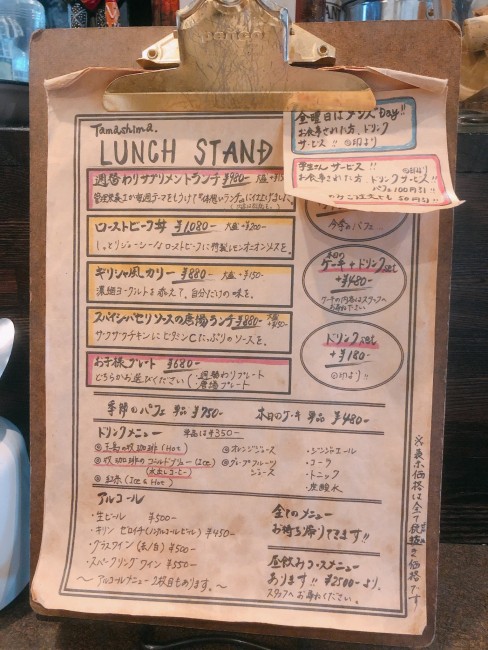 Tamashima.
LUNCH STAND
金曜日はメンズDay!!
お食事された方、ドリンク
サービス!! ◎印より
学生さんサービス!!
お食事された方 ドリンクサービス!!
パフェ100円引!!
週替わりサプリメントランチ ¥980-
ローストビーフ丼 ¥1080- 大盛+¥200-
しっとりジューシーなローストビーフに特製レモンオニオンソースを。
ギリシャ風カリー ¥880- 大盛+¥150-
濃縮ヨーグルトを添えて。自分だけの味を。
スパイシーパセリソースの唐揚ランチ ¥880- 大盛+¥150-
サクサクチキンにビタミンCたっぷりのソースを。
お子様プレート ¥680-
どちらかお選びください
・週替わりプレート
・唐揚プレート
今季のパフェ
本日の
ケーキ+ドリンクset
+¥480-
ケーキの内容はスタッフへ
お尋ね下さい
ドリンクset
+¥180-
◎印より!!
季節のパフェ 単品 ¥750-
本日のケーキ 単品 ¥480-
ドリンクメニュー 単品は¥350-
(Hot)
◎牧珈琲のコールドブリュー(Ice)
(水出しコーヒー)
◎紅茶(Ice & Hot)
◎オレンジジュース
◎グレープフルーツ
ジュース
・ジンジャエール
・コーラ
・トニック
・炭酸水
アルコール
・生ビール ¥500-
・キリン ゼロイチ(ノンアルコールビール) ¥450-
・グラスワイン(赤/白) ¥500-
・スパークリングワイン ¥550-
〜アルコールメニュー2枚目もあります。〜
全てのメニュー
お持ち帰りできます!!
昼飲みコースメニュー
あります!! ¥2500-より。
スタッフへお尋ねください。
※表示価格は全て税抜き価格です